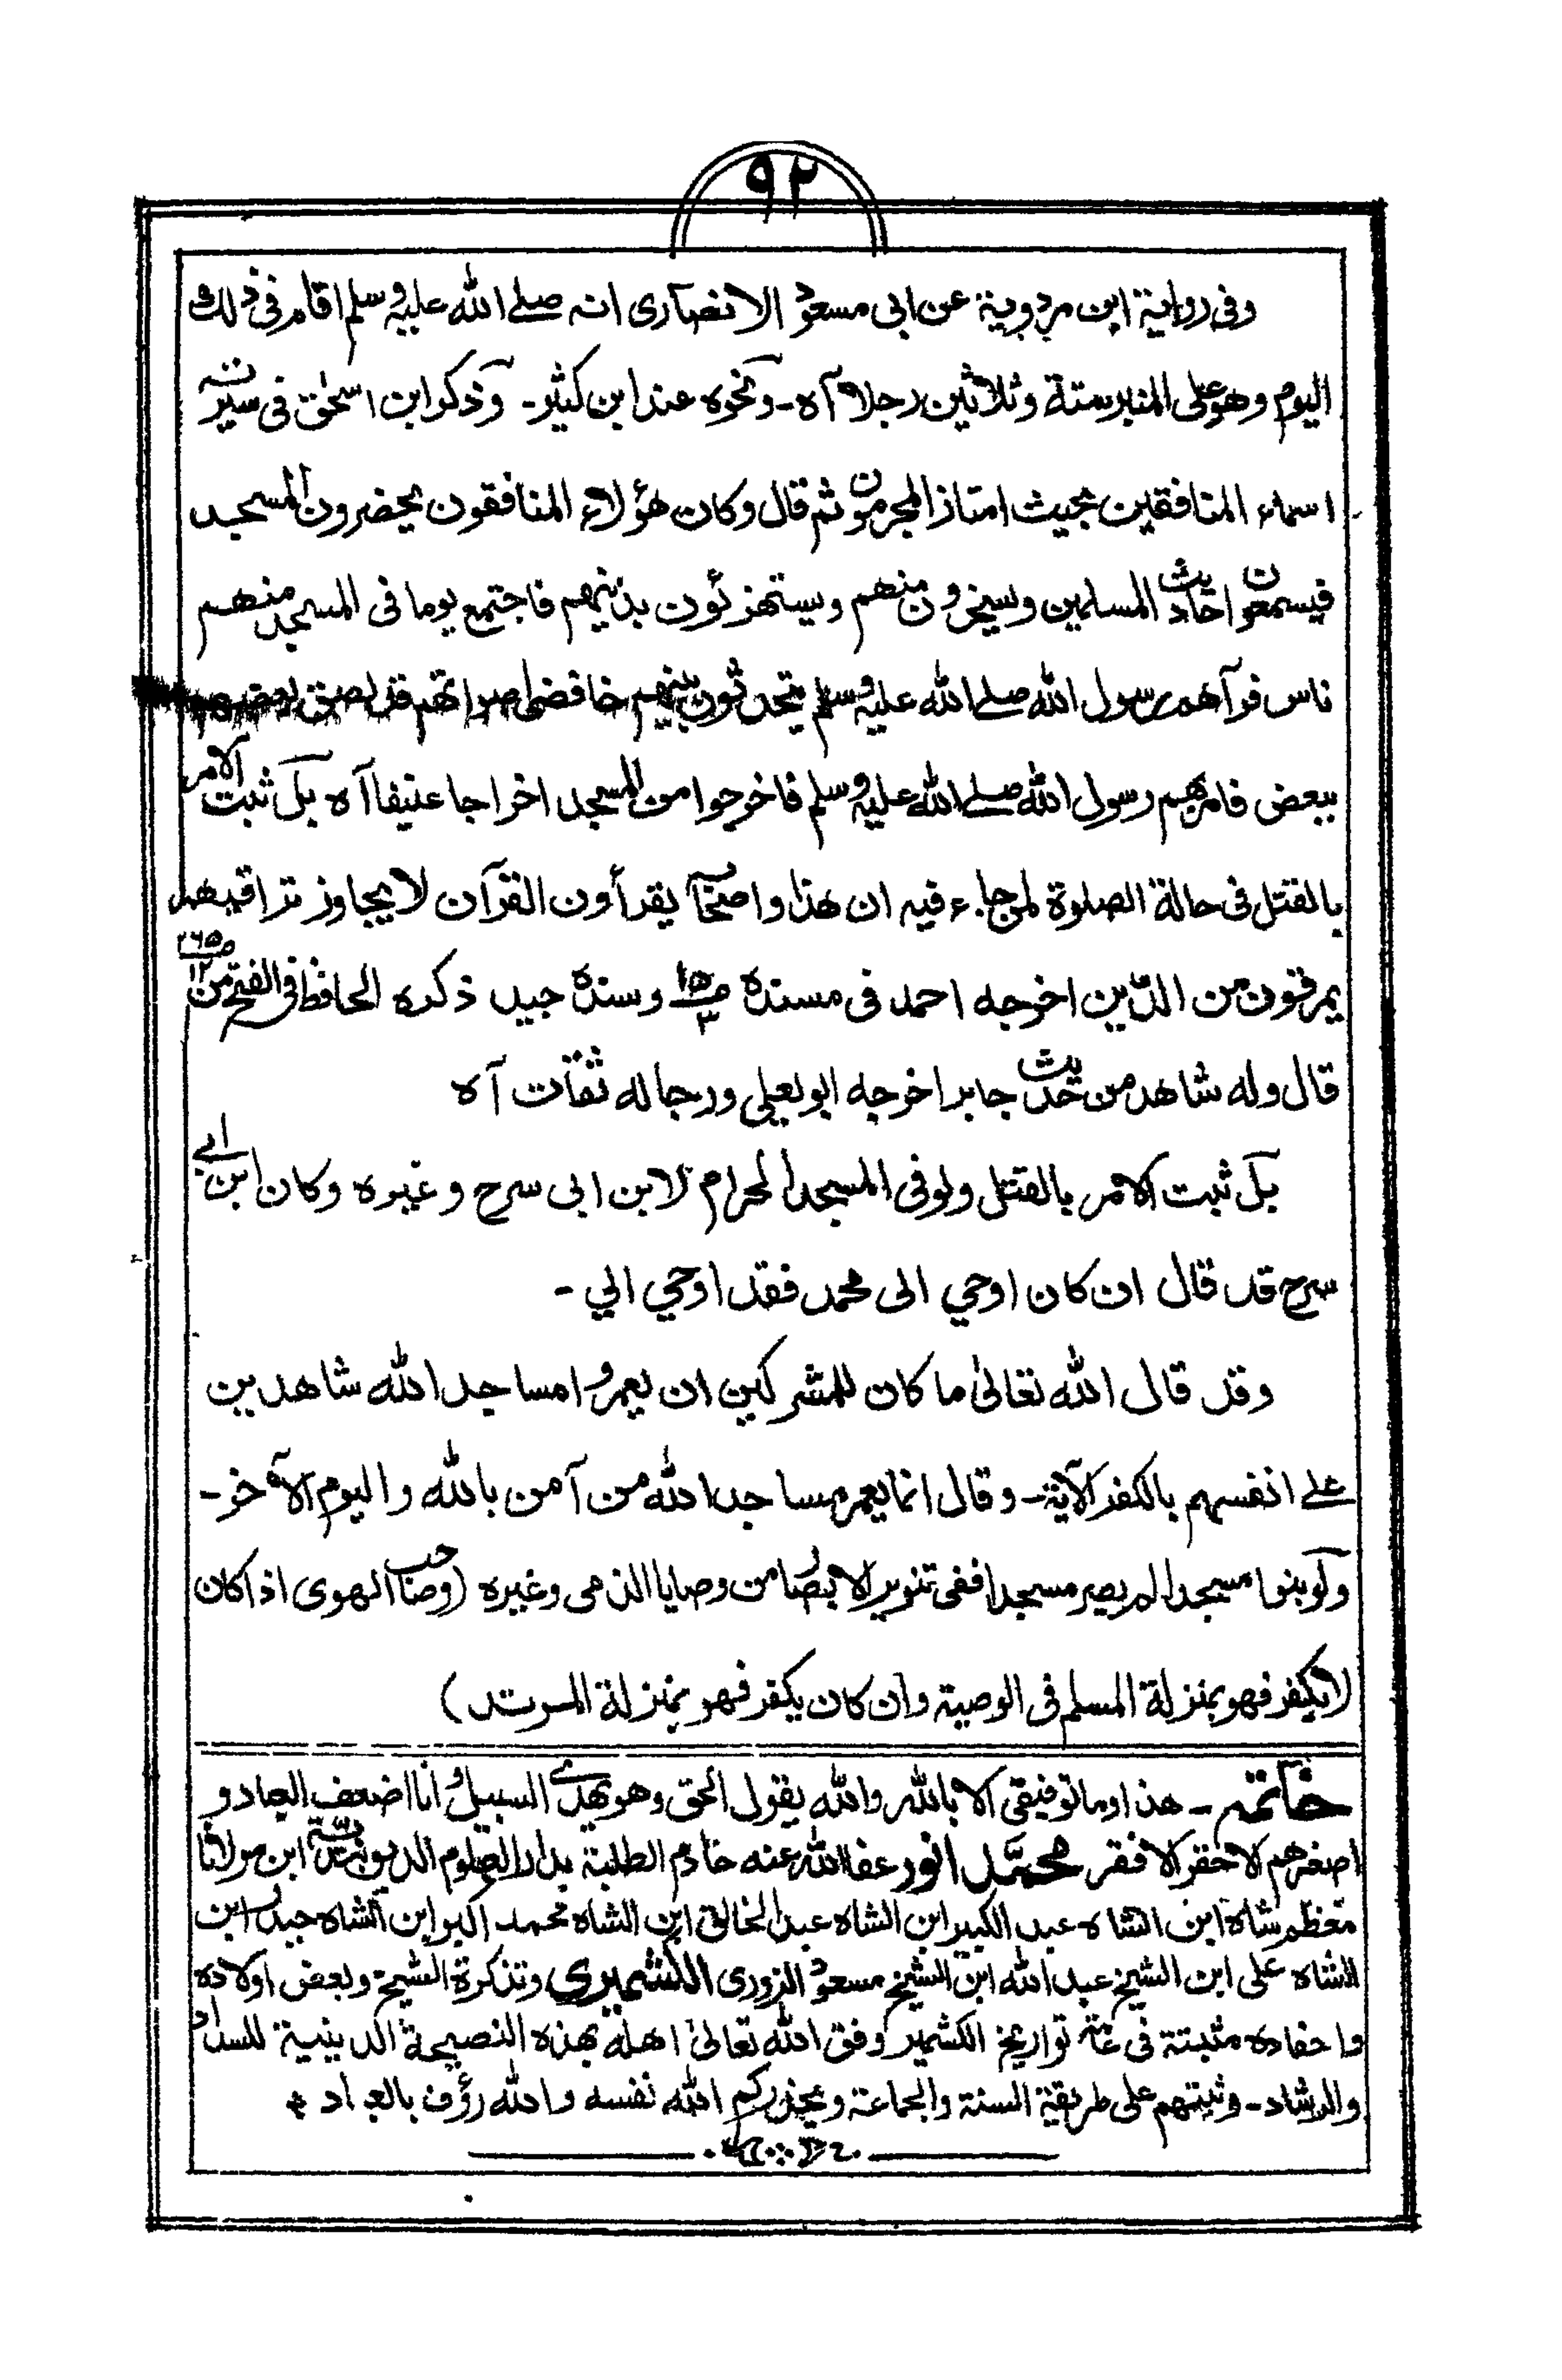 ٩٢
وفى رواية ابن مردوية عن ابى مسعود الانصارى انه صلے الله عليه وسلم اقام فى ذلك
اليوم وهو على المنبر ستة وثلاثين رجلا آه - ونحوه عند ابن كثير - وذكر ابن اسحٰق فى سيرته
اسماء المنافقين بحيث امتاز المجرمون ثم قال وكان هؤلاء المنافقون يحضرون المسجد
فيسمعون احاديث المسلمين وسيخرون منهم ويستهزئون بدينهم فاجتمع يوما فى المسجد منهم
ناس فرآهم رسول الله صلے الله عليه وسلم يتحدثون بينهم خافضى اصواتهم قد لصق بعضهم
ببعض فامر بهم رسول الله صلے الله عليه وسلم فاخرجوا من المسجد اخراجا عنيفا آه بل ثبت الامر
بالقتل فى حالة الصلوة لمن جاء فيه ان هذا واصحابا يقرأون القرآن لا يجاوز تراقيهم
يمرقون من الدّين اخرجه احمد فى مسنده ص١٥/٣ وسنده جيد ذكره الحافظ فى الفتح من ص٢٦٥/١٢
قال وله شاهد من حديث جابر اخرجه ابو يعلى ورجاله ثقات آه
بل ثبت الامر بالقتل ولو فى المسجد الحرام لابن ابى سرح وغيره وكان ابن ابے
سرح قد قال ان كان اوحي الى محمد فقد اوحي الي -
وقد قال الله تعالىٰ ما كان للمشركين ان يعمروا مساجد الله شاهدين
علے انفسهم بالكفر الآية - وقال انما يعمر مساجد الله من آمن بالله واليوم الآخر -
ولو بنوا مسجدا لم يصير مسجدا ففى تنوير الابصار من وصايا الذمى وغيره (وصاحب الهوى اذا كان
لا يكفر فهو بمنزلة المسلم فى الوصية وان كان يكفر فهو بمنزلة المرتد)
خاتمه - هذا وما توفيقى الا بالله والله يقول الحق وهو يهدے السبيل وانا اضعف العباد و
اصغرهم الاحقر الافقر محمّد انور عفا الله عنه خادم الطلبة بدار العلوم الديوبندية ابن مولانا
معظم شاه ابن الشاه عبد الكبير ابن الشاه عبد الخالق ابن الشاه محمد اكبر ابن الشاه حيدر ابن
الشاه على ابن الشيخ عبد الله ابن الشيخ مسعود النرورى الكشميرى وتذكرة الشيخ وبعض اولاده
واحفاده مثبتة فى عامة تواريخ الكشمير وفق الله تعالىٰ اهله بهذه النصيحة الدينية للسداد
والرشاد - وثبتهم على طريقة السنة والجماعة ويحذركم الله نفسه والله رؤف بالعباد *